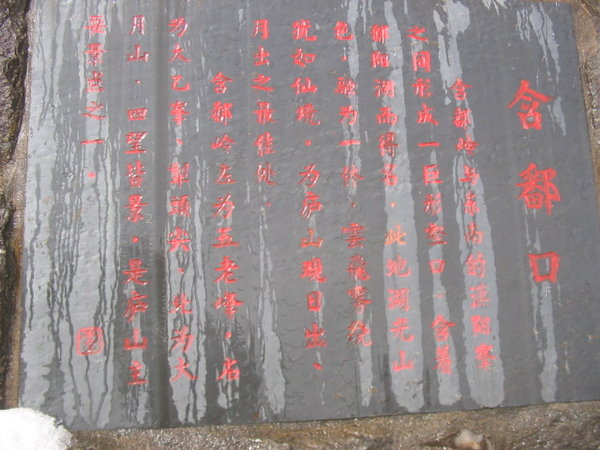 含鄱口
含鄱岭与对面的汉阳峯
之间形成一巨形壑口，含着
鄱阳湖而得名，此地湖光山
色，融为一体，雲飛雾绕
犹如仙境，为庐山观日出、
月出之最佳处。
含鄱岭左为五老峰，右
为太乙峯，犁頭尖，北为大
月山，四望皆景，是庐山主
要景点之一。